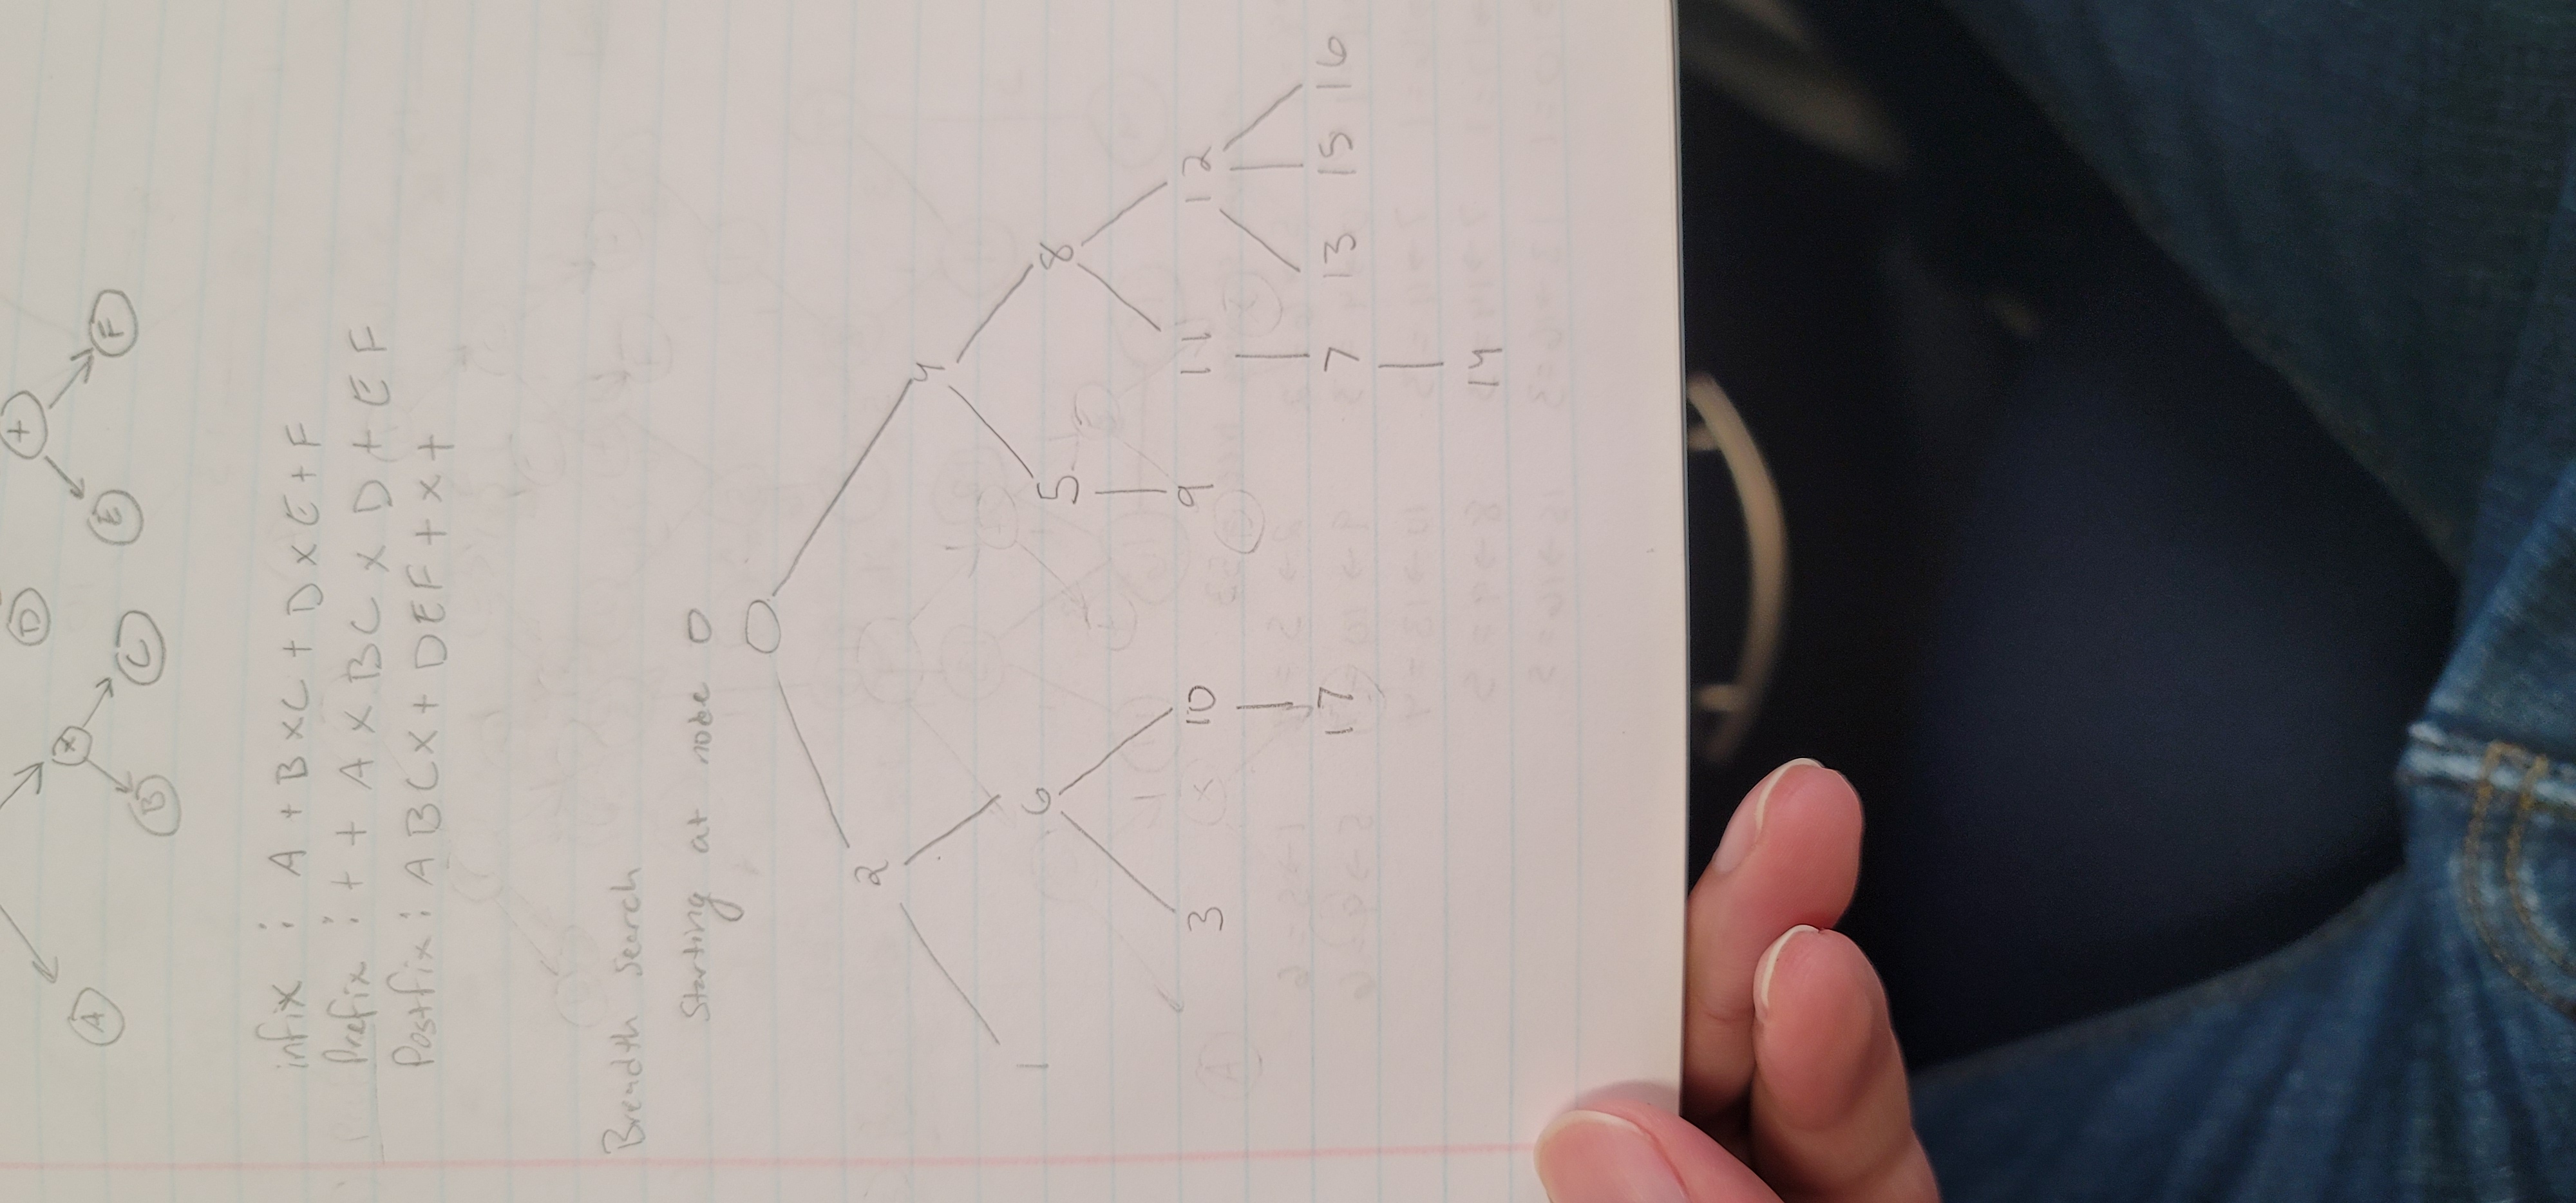 +
D
A
x
E
F
B
C
infix : A + B x C + D x E + F
Prefix : + + A x B C x D + E F
Postfix : A B C x + D E F + x +
Breadth Search
Starting at node 0
0
2
4
1
6
5
8
3
10
9
11
12
17
7
13
15
16
14